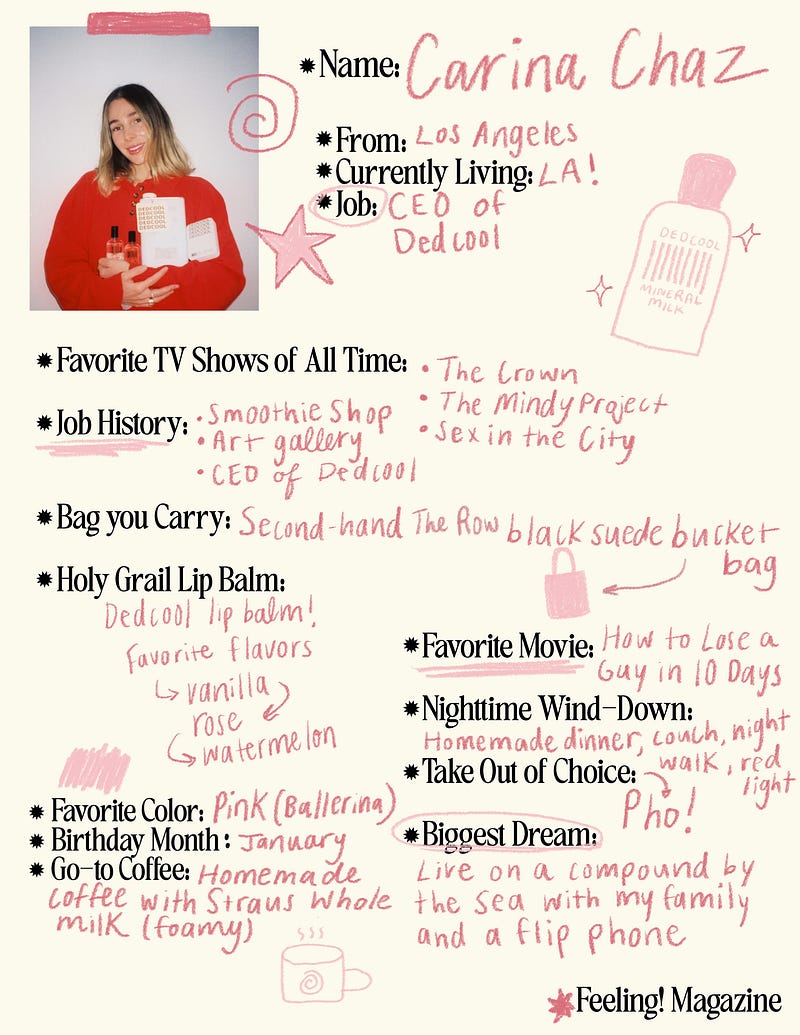 Name: Carina Chaz
From: Los Angeles
Currently Living: LA!
Job: CEO of
Dedcool
DEDCOOL
DEDCOOL
DEDCOOL
DEDCOOL
DEDCOOL
MINERAL
MILK
Favorite TV Shows of All Time:
• The Crown
• The Mindy Project
• Sex in the City
Job History:
• Smoothie Shop
• Art gallery
• CEO of Dedcool
Bag you Carry: Second-hand The Row black suede bucket
bag
Holy Grail Lip Balm:
Dedcool lip balm!
Favorite flavors
vanilla
rose
watermelon
Favorite Movie: How to Lose a
Guy in 10 Days
Nighttime Wind-Down:
Homemade dinner, couch, night
walk, red
light
Take Out of Choice:
Pho!
Favorite Color: Pink (Ballerina)
Birthday Month: January
Go-to Coffee: Homemade
coffee with Straus Whole
milk (foamy)
Biggest Dream:
Live on a compound by
the sea with my family
and a flip phone
Feeling! Magazine